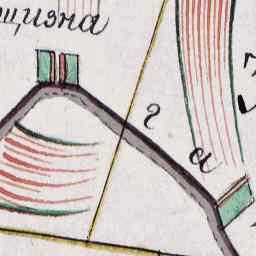 щизна
г
а